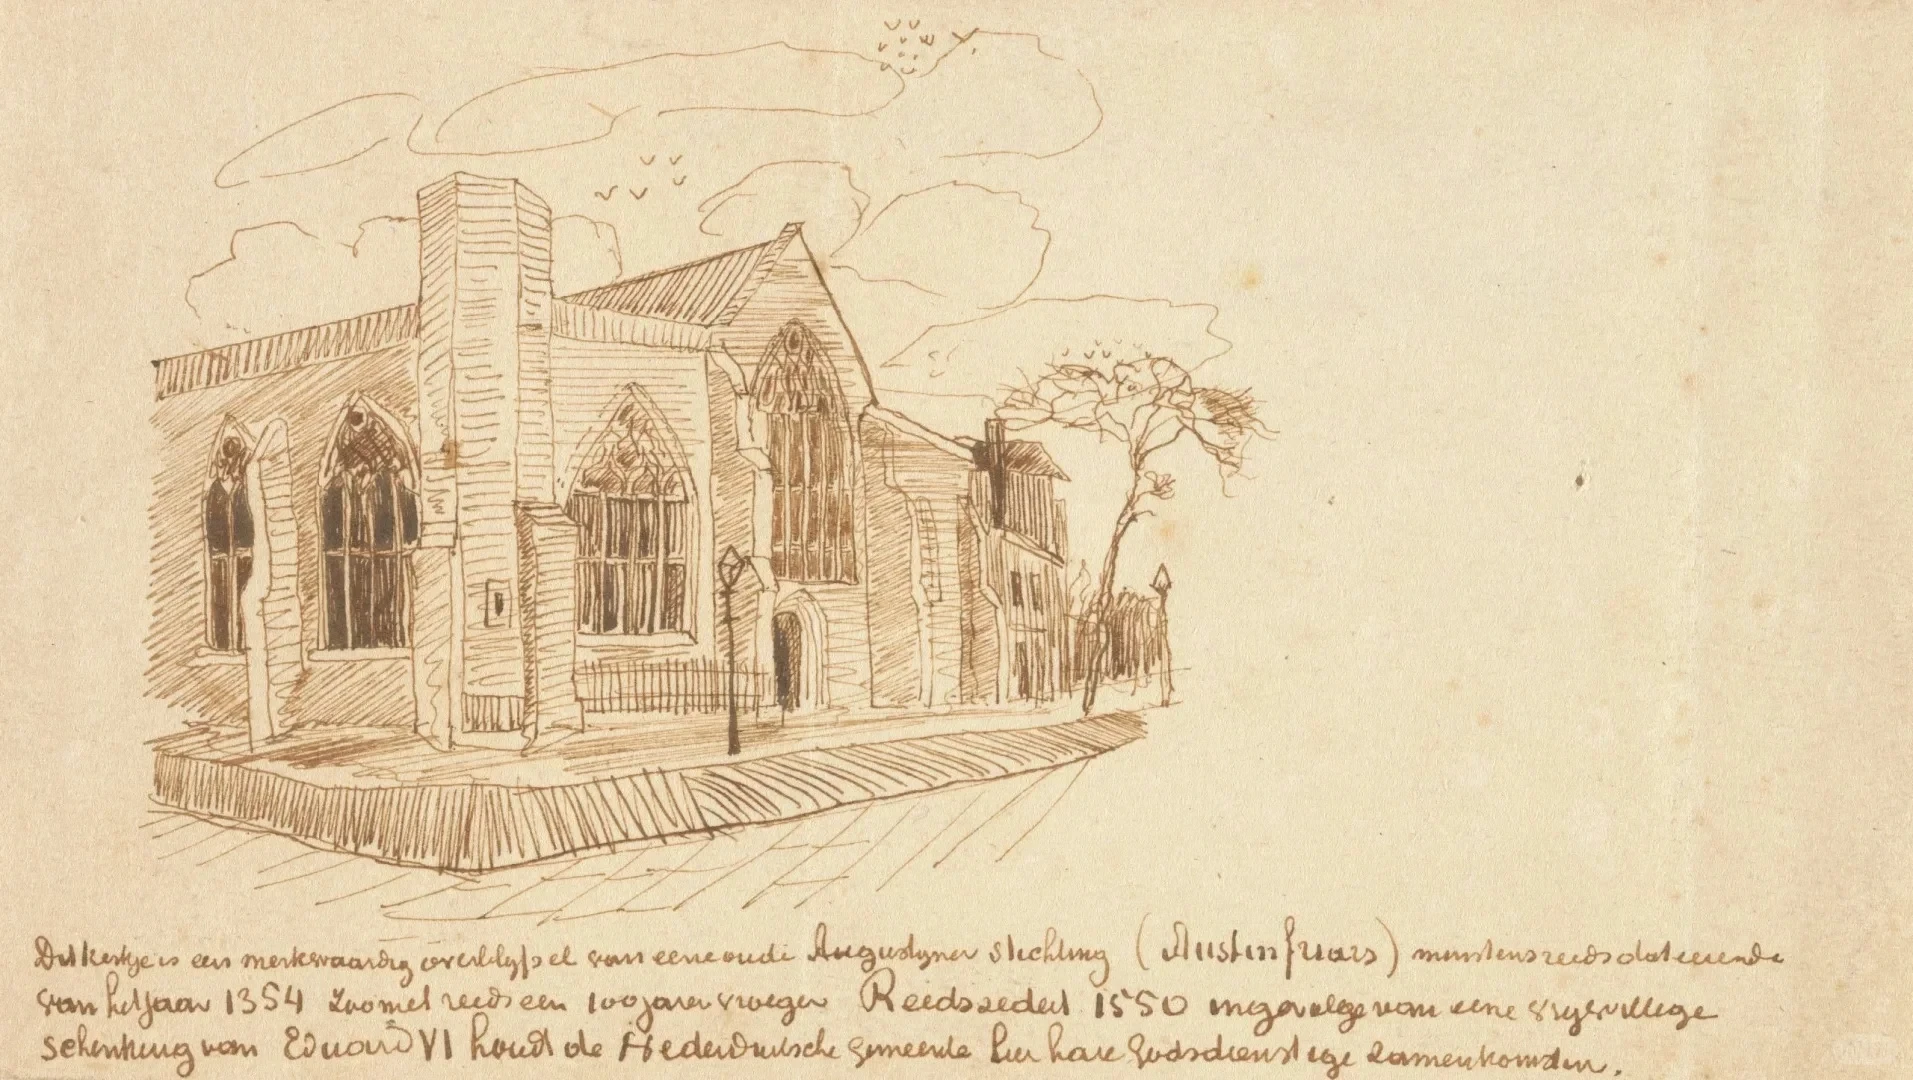 Dit kerkje is een merkwaardig overblyfsel van eene oude Augustyner stichting (Austin friars) minstens reeds dateerende
van het jaar 1354 zoo niet reeds een 100 jaar vroeger Reeds sedert 1550 ingevolge van eene vrywillege
schenking van Eduard VI houdt de Nederduitsche gemeente hier hare Godsdienstige zamenkomsten.